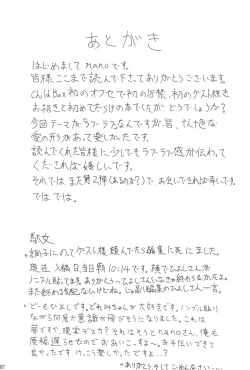 あとがき
はじめまして nanoです。
皆様ここまで読んで下さってありがとうございます。
Child Box初のオフセで初の18発、初のゲスト様を
お招きと初めてだらけの本でしたが、どうでしょうか?
今回テーマがラブラブなんですが、皆、十人十色な
愛の形があって楽しかったです。
読んでくれた皆様に少しでもラブラブ感が伝わって
くだされば嬉しいです。
それでは、また第2弾(あるのか?)で、お会いできれば幸いです。
ではでは。
駄文
調子にのってゲスト様頼んでたら編集に死にました。
現在 入稿日当日朝10時です。隣でひよしさんが
ノンブル貼ってます。ありがとうひよしさん
また終わる気配なし
どーもひよしです。どれみちゃんが大好きです。ノンブル貼り
ながら何度か意識が飛びそうになりました。これは
夢ですか、現実デスカ?それはそうとnanoさん、俺も
原稿遅らせたのでおあいこ。すよ〜。お手伝いできて
良かったです。けっこう楽しかったですよ…?
ありがとう、そしてごめんなさい…